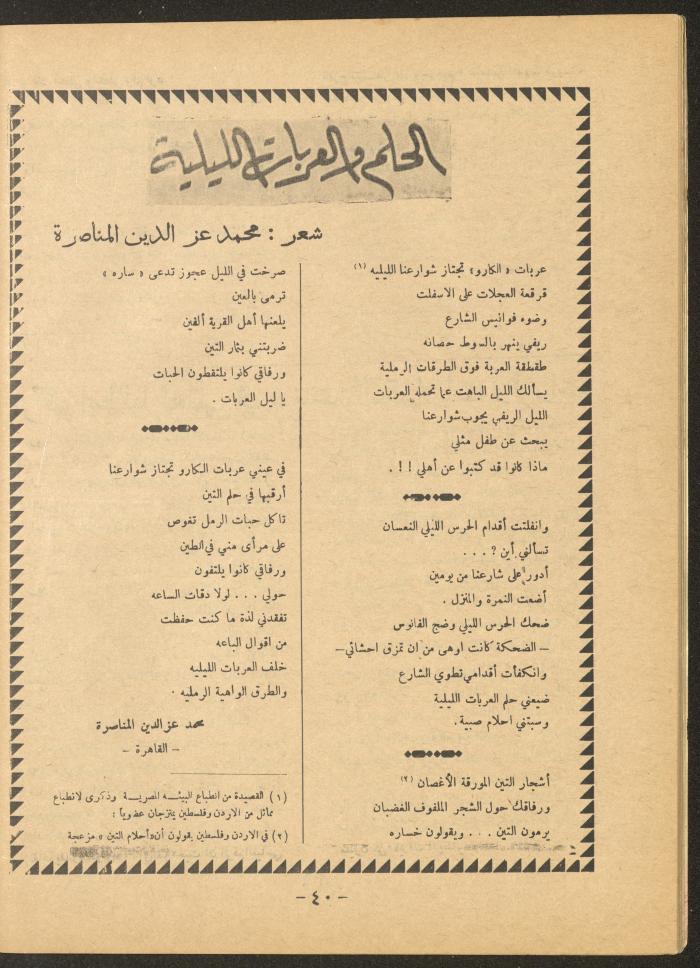 الحلم والعربات الليلية
شعر : محمد عز الدين المناصرة
عربات « الكارو» تجتاز شوارعنا الليليه (١)
قرقعة العجلات على الاسفلت
وضوء فوانيس الشارع
ريفي ينهر بالسوط حصانه
طقطقة العربة فوق الطرقات الرملية
يسألك الليل الباهت عما تحمله العربات
الليل الريفي يجوب شوارعنا
يبحث عن طفل مثلي
ماذا كانوا قد كتبوا عن أهلي ! ! .
وانفلتت أقدام الحرس الليلي النعسان
تسألني أين ? . . .
أدور على شارعنا من يومين
أضعت النمرة والمنزل .
ضحك الحرس الليلي وضج الفانوس
– الضحكة كانت اوهى من ان تمزق احشائي –
وانكفأت أقدامي تطوي الشارع
ضيعني حلم العربات الليلية
وسبتني احلام صبية .
أشجار التين المورقة الأغصان (٢)
ورفاقك حول الشجر الملفوف الغضبان
يرمون التين . . . ويقولون خساره
صرخت في الليل عجوز تدعى « ساره »
ترمى بالعين
يلعنها أهل القرية ألفين
ضربتني بثمار التين
ورفاقي كانوا يلتقطون الحبات
يا ليل العربات .
في عيني عربات الكارو تجتاز شوارعنا
أرقبها في حلم التين
تاكل حبات الرمل تغوص
على مرأى مني في الطين
ورفاقي كانوا يلتفون
حولي . . . لولا دقات الساعه
تفقدني لذة ما كنت حفظت
من اقوال الباعه
خلف العربات الليليه
والطرق الواهية الرمليه .
محمد عزالدين المناصرة
– القاهرة –
(١) القصيدة من انطباع البيئة المصرية وذكرى لانطباع
مماثل من الاردن وفلسطين يمتزجان عضويا :
(٢) في الاردن وفلسطين يقولون أن «أحلام التين » مزعجة
– ٤٠ –